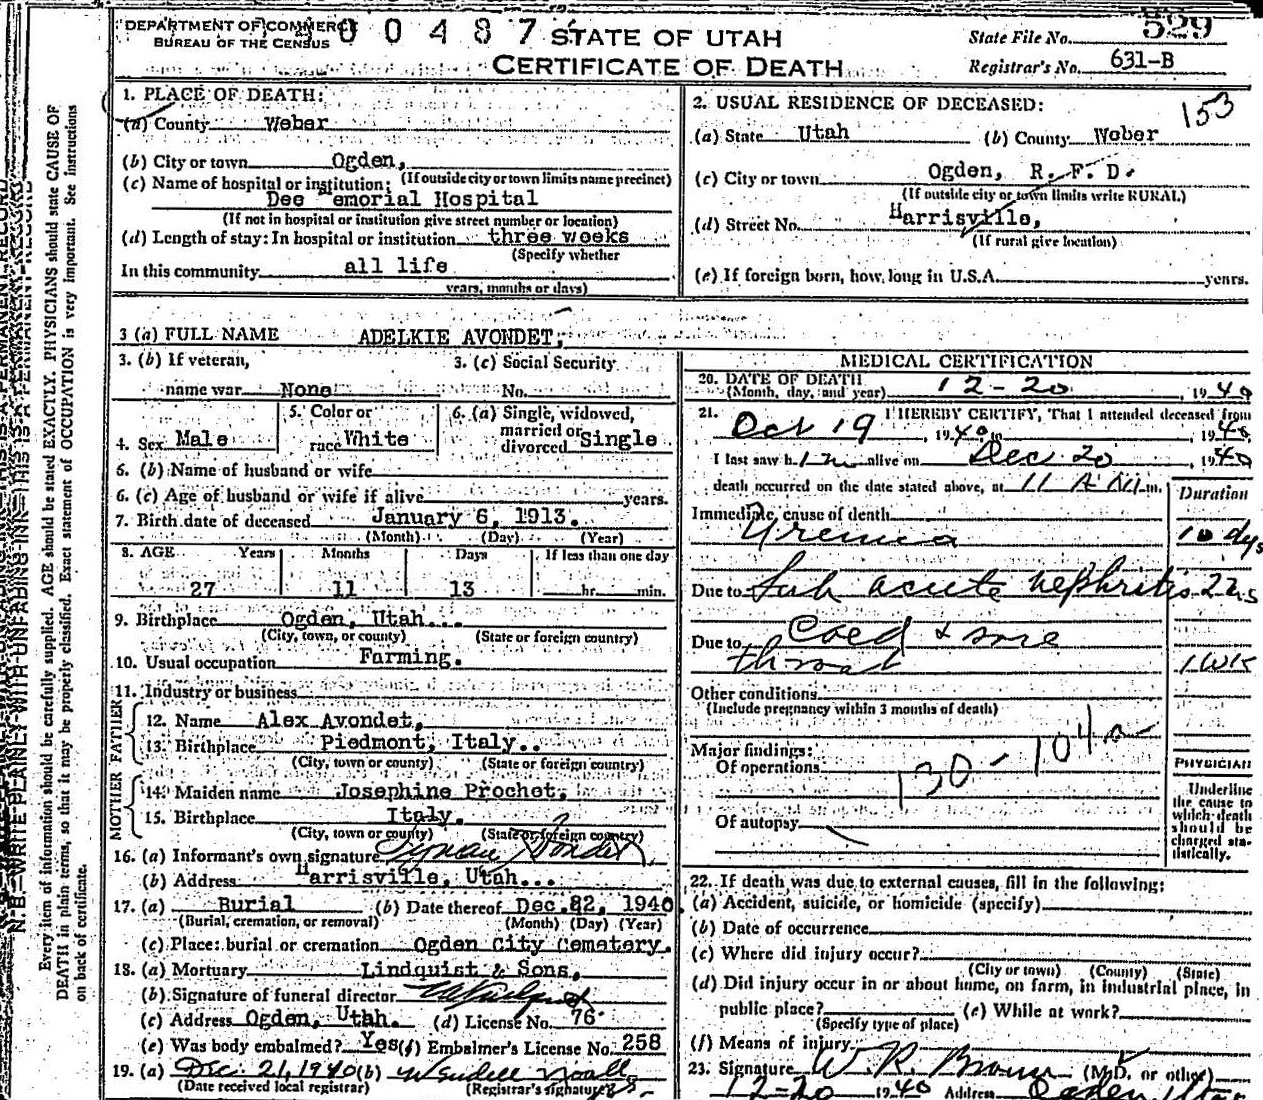 DEPARTMENT OF COMMERCE
BUREAU OF THE CENSUS
00487
STATE OF UTAH
CERTIFICATE OF DEATH
State File No. 529
Registrar's No. 631-B
1. PLACE OF DEATH:
(a) County Weber
(b) City or town Ogden,
(If outside city or town limits name precinct)
(c) Name of hospital or institution:
Dee emorial Hospital
(If not in hospital or institution give street number or location)
(d) Length of stay: In hospital or institution three weeks
(Specify whether
In this community all life
years, months or days)
2. USUAL RESIDENCE OF DECEASED:
153
(a) State Utah (b) County Weber
(c) City or town Ogden, R. F. D.
(If outside city or town limits write RURAL)
(d) Street No. Harrisville,
(If rural give location)
(e) If foreign born, how long in U.S.A. years.
3 (a) FULL NAME ADELKIE AVONDET,
3. (b) If veteran,
name war None
3. (c) Social Security
No.
4. Sex Male
5. Color or
race White
6. (a) Single, widowed,
married or
divorced Single
6. (b) Name of husband or wife
6. (c) Age of husband or wife if alive years.
7. Birth date of deceased January 6, 1913.
(Month) (Day) (Year)
8. AGE Years Months Days If less than one day
27 11 13 hr. min.
9. Birthplace Ogden, Utah...
(City, town, or county) (State or foreign country)
10. Usual occupation Farming.
11. Industry or business
FATHER
12. Name Alex Avondet,
13. Birthplace Piedmont, Italy..
(City, town or county) (State or foreign country)
MOTHER
14. Maiden name Josephine Prochet,
15. Birthplace Italy.
(City, town or county) (State or foreign country)
16. (a) Informant's own signature Avondet
(b) Address Harrisville, Utah...
17. (a) Burial (b) Date thereof Dec. 22, 1940.
(Burial, cremation, or removal) (Month) (Day) (Year)
(c) Place: burial or cremation Ogden City Cemetery.
18. (a) Mortuary Lindquist & Sons,
(b) Signature of funeral director
(c) Address Ogden, Utah. (d) License No. 76
(e) Was body embalmed? Yes (f) Embalmer's License No. 258
19. (a) Dec. 21, 1940 (b) Wendell Noall
(Date received local registrar) (Registrar's signature)
MEDICAL CERTIFICATION
20. DATE OF DEATH
(Month, day, and year) 12-20, 1940
21. I HEREBY CERTIFY, That I attended deceased from
Oct 19, 1940 to , 1940
I last saw him alive on Dec 20, 1940
death occurred on the date stated above, at 11 A M m.
Duration
Immediate cause of death
Uremia 10 dys
Due to Sub acute nephritis
Due to Cold & sore
throat 1 wk
Other conditions
(Include pregnancy within 3 months of death)
Major findings:
Of operations
130-104a
Of autopsy
PHYSICIAN
Underline
the cause to
which death
should be
charged sta-
tistically.
22. If death was due to external causes, fill in the following:
(a) Accident, suicide, or homicide (specify)
(b) Date of occurrence
(c) Where did injury occur?
(City or town) (County) (State)
(d) Did injury occur in or about home, on farm, in industrial place, in
public place? (e) While at work?
(Specify type of place)
(f) Means of injury
23. Signature W. R. Brown (M.D. or other)
12-20 1940 Address Ogden, Utah
N.B.—WRITE PLAINLY WITH UNFADING INK—THIS IS A PERMANENT RECORD
Every item of information should be carefully supplied. AGE should be stated EXACTLY. PHYSICIANS should state CAUSE OF
DEATH in plain terms, so that it may be properly classified. Exact statement of OCCUPATION is very important. See instructions
on back of certificate.